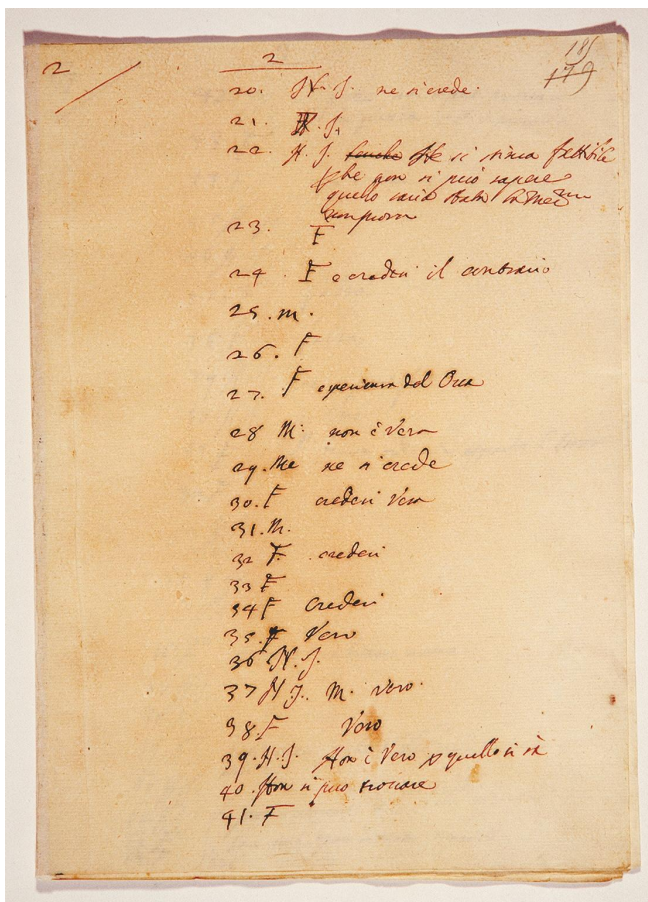 2
2
185
179
20. N. S. ne si crede.
21. N. S.
22. N. S. Ne si stima fattibile
che non si può sapere
quello
23. F
24. F e credesi il contrario
25. M.
26. F
27. F del
28 M: non è Vero
29. Me ne si crede
30. F credesi Vero
31. M.
32 F. credesi
33 F
34 F Credesi
35. F Vero
36 N. S.
37 N S. M. vero.
38. F Vero
39. N. S. Non è Vero p quello si sà
40. Non si può trovare
41. F